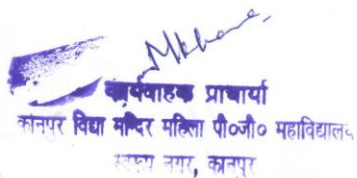 कार्यवाहक प्राचार्या
कानपुर विद्या मन्दिर महिला पी०जी० महाविद्यालय
स्वरूप नगर, कानपुर